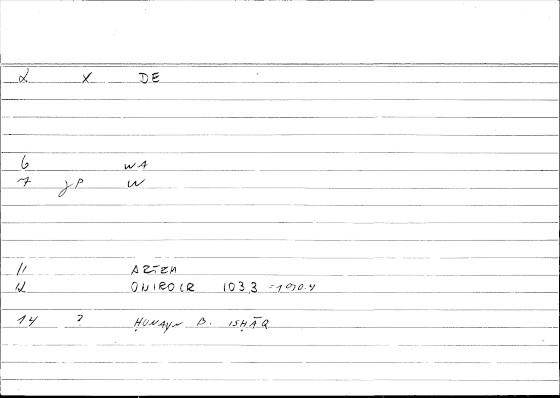 2 X DE
6 WA
7 γP W
11 ARTEM
12 ONIROCR 103,3 =190.4
14 ? ḤUNAYN B. ISḤĀQ